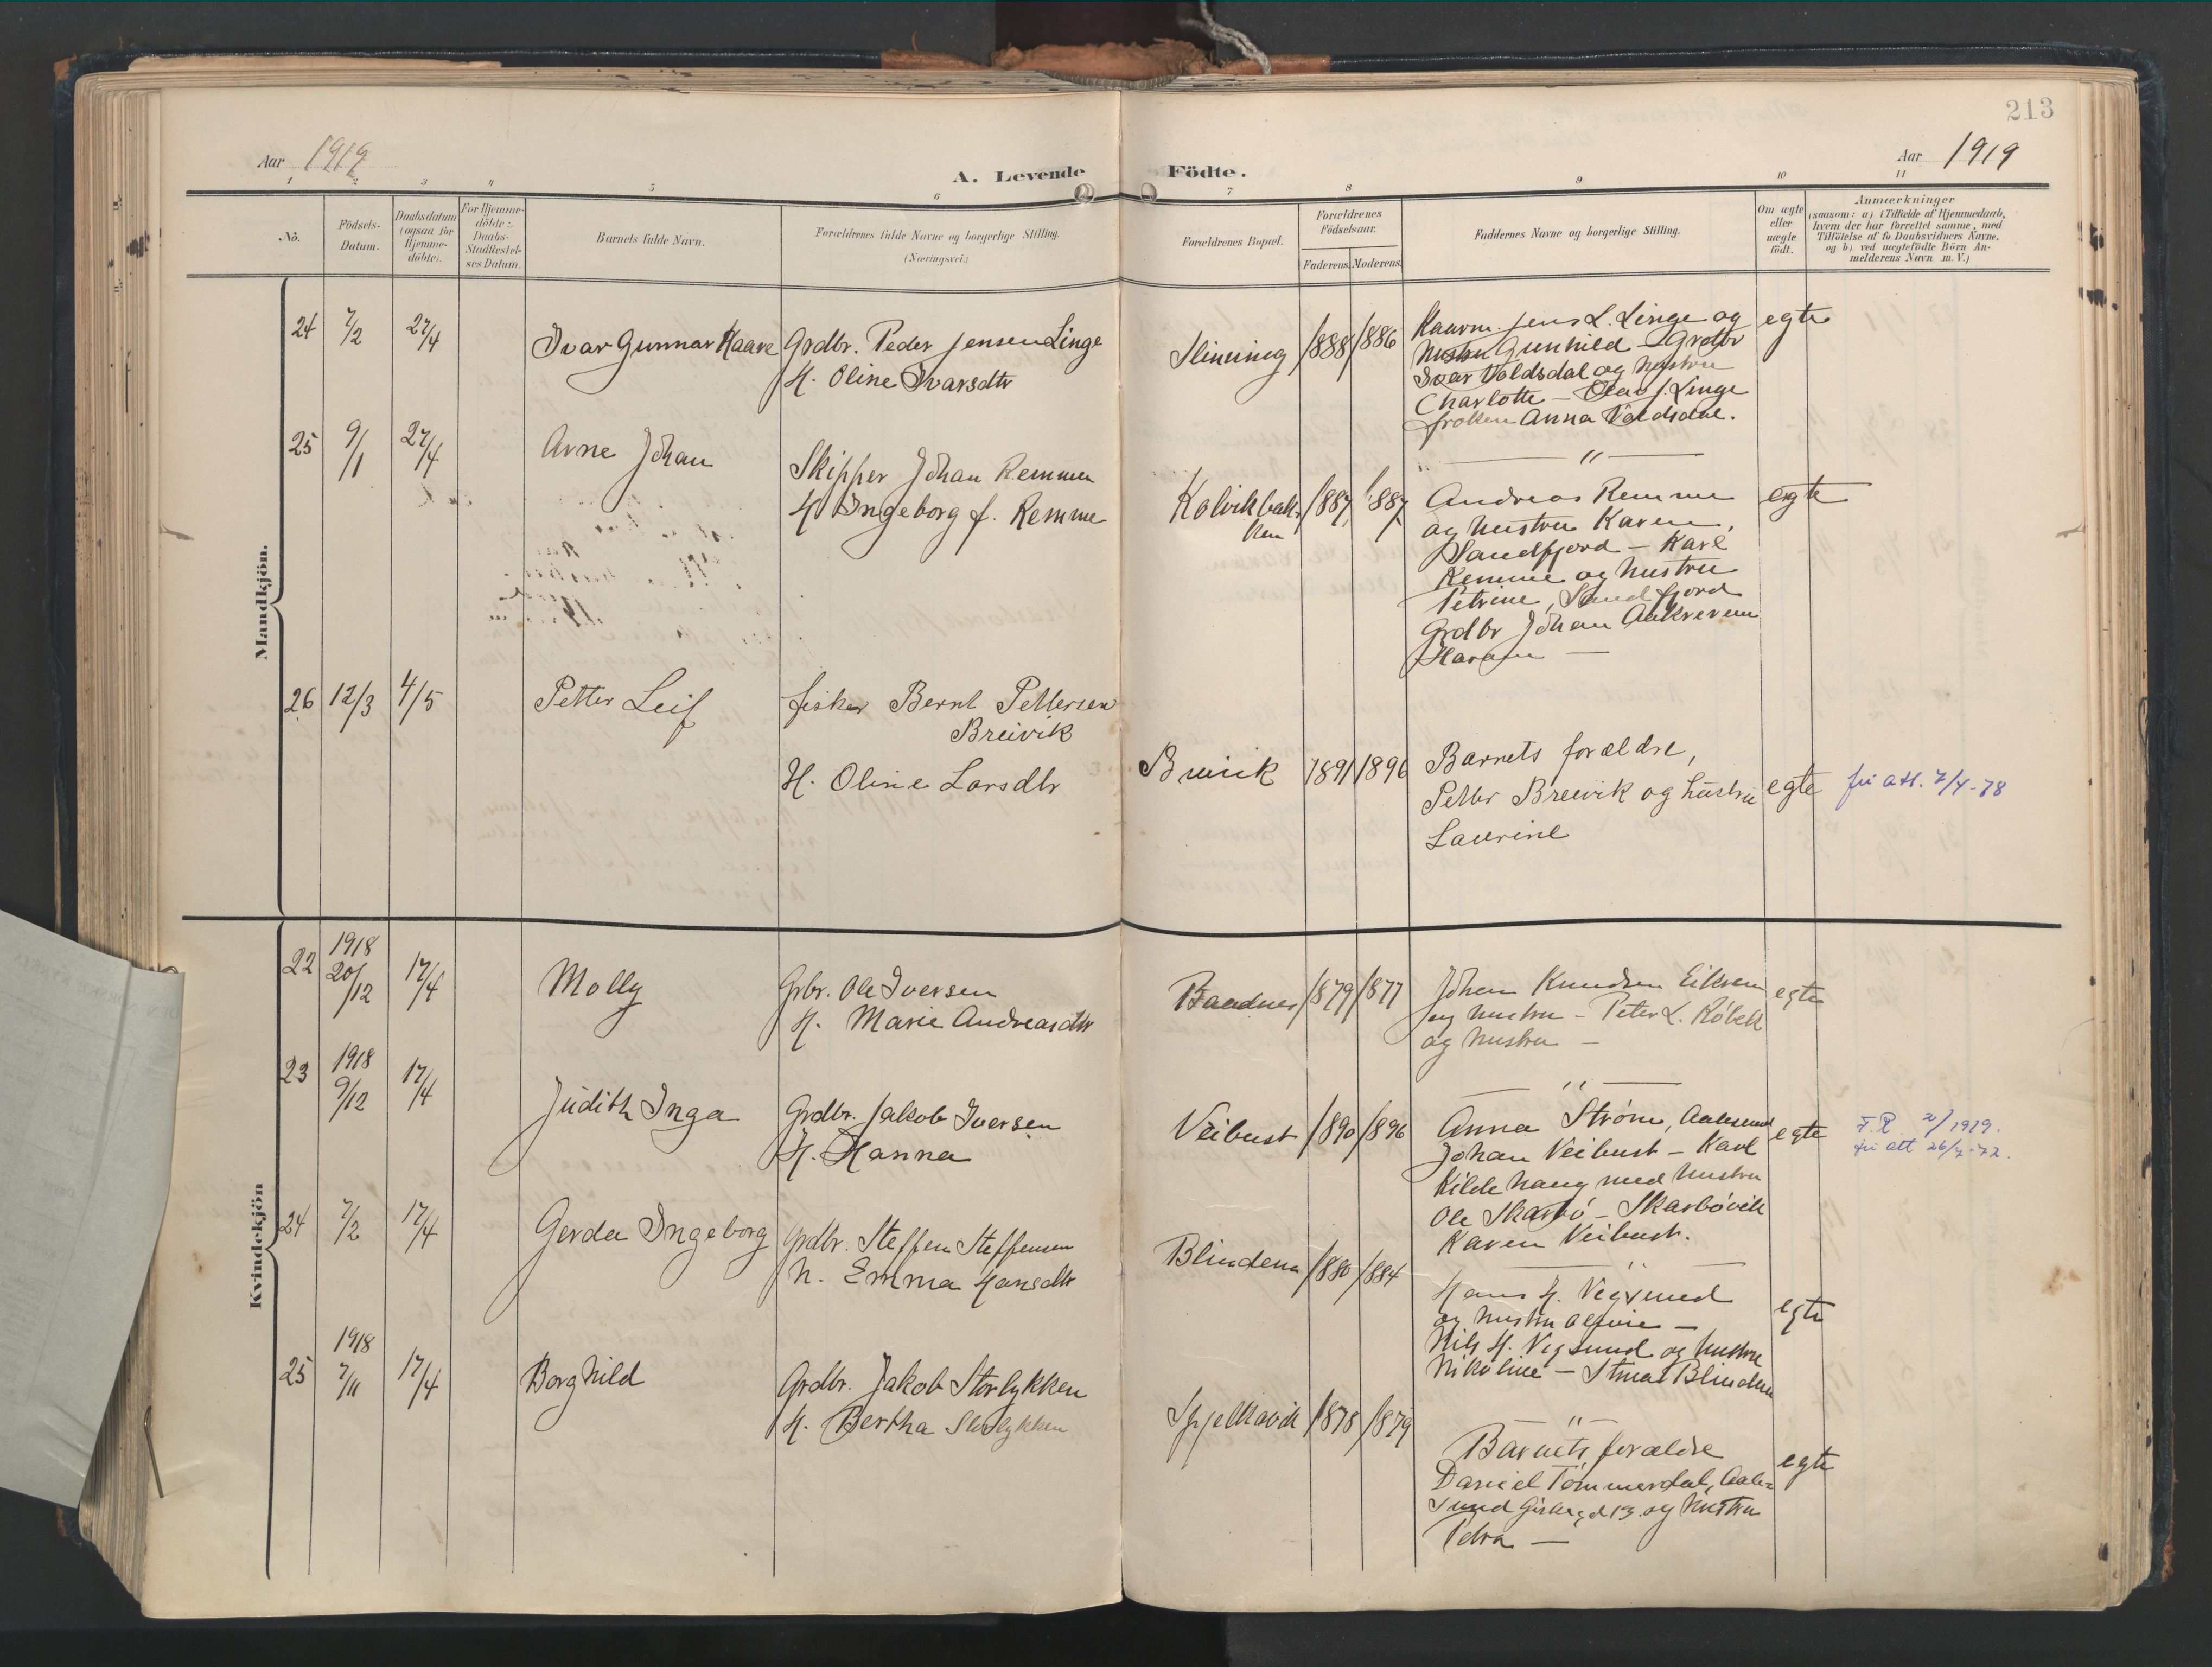 213
Aar 1919
A. Levende Födte.
Aar 1919
1 2 3 4 5 6 7 8 9 10 11
No.
Födsels-
Datum.
Daabsdatum
(ogsaa for
Hjemme-
döbte).
For Hjemme-
döbte:
Daabs-
Stadfæstel-
ses Datum.
Barnets fulde Navn.
Forældrenes fulde Navne og borgerlige Stilling.
(Næringsvei.)
Forældrenes Bopæl.
Forældrenes
Födselsaar.
Faderens. Moderens.
Faddernes Navne og borgerlige Stilling.
Om ægte
eller
uægte
födt.
Anmærkninger
(saasom: a) i Tilfælde af Hjemmedaab,
hvem der har forrettet samme, med
Tilföielse af to Daabsvidners Navne,
og b) ved uægtefödte Börn An-
melderens Navn m. V.)
Mandkjön.
24 7/2 27/4 Ivar Gunnar Kaare
Grdbr. Peder Jensen Linge
H. Oline Ivarsdtr
Slinning 1888 1886
Kaarm. Jens L. Linge og
hustru Gunhild - Grdbr
Ivar Valdsdal og hustru
Charlotte - Olav J. Linge
frøken Anna Valdsdal.
egte
25 9/1 27/4 Arne Johan
Skipper Johan Remmen
H Ingeborg f. Remme
Kolvikbak-
ken
1887 1887
— " —
Andreas Remme
og hustru Karen,
Sandfjord - Karl
Remme og hustru
Petrine, Sandfjord
Grdbr Johan Aakrevem
Haram —
egte
26 12/3 4/5 Petter Leif
fisker Bernt Pettersen
Breivik
H. Oline Larsdtr
Breivik 1891 1896
Barnets forældre,
Petter Breivik og hustru
Laurine
egte
fri att. 7/4-78
Kvindekjön
22 1918
20/12 17/4 Molly
Grbr. Ole Iversen
H. Marie Andreasdtr
Baadnes 1879 1877
Johan Knudsen Eikrem
og hustru - Peter L. Røbek
og hustru —
egte
23 1918
9/12 17/4 Judith Inga
Grdbr. Jakob Iversen
H. Hanna
Veibust 1890 1896
— " —
Anna Strøm, Aalesund
Johan Veibust - Karl
Kildehaug med hustru
Ole Skarbö - Skarbövik
Karen Veibust.
egte
F.R. 2/1919.
fri att 26/7-72.
24 7/2 17/4 Gerda Ingeborg
Grdbr. Steffen Steffensen
h. Emma Hansdtr
Blindem 1880 1884
— " —
Hans H. Vegsund
og hustru Olivie —
Nils H. Vegsund og hustru
Nikoline - Stina Blindem
egte
25 1918
7/11 17/4 Borghild
Grdbr. Jakob Storlykken
H. Bertha Storlykken
Spjelkavik 1878 1879
— " —
Barnets forældre
Daniel Tømmerdal, Aale-
sund Giskegd 13 og hustru
Petra —
egte